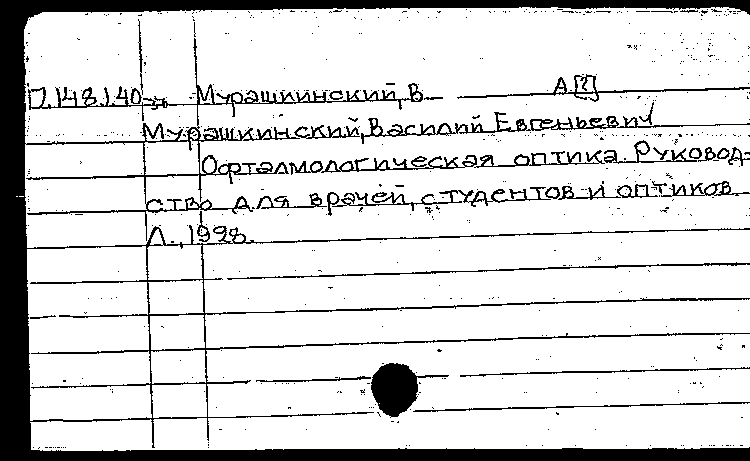 П.148.140 Мурашкинский, В. А[?]
Мурашкинский, Василий Евгеньевич
Офталмологическая оптика. Руковод=
ство для врачей, студентов и оптиков
Л., 1928.